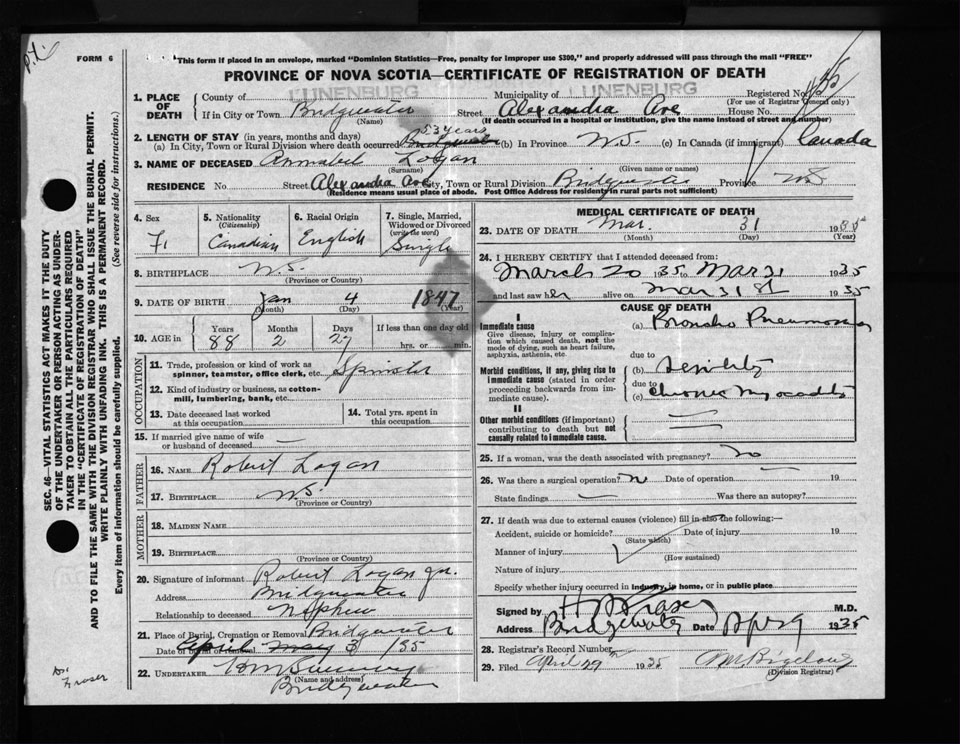 p.t.
FORM 6
This form if placed in an envelope, marked "Dominion Statistics—Free, penalty for improper use $300," and properly addressed will pass through the mail "FREE"
PROVINCE OF NOVA SCOTIA—CERTIFICATE OF REGISTRATION OF DEATH
1. PLACE OF DEATH
County of LUNENBURG Municipality of LUNENBURG Registered No.
(For use of Registrar General only)
If in City or Town Bridgewater Street Alexandra Ave House No.
(Name) (If death occurred in a hospital or institution, give the name instead of street and number)
2. LENGTH OF STAY (in years, months and days) 53 years
(a) In City, Town or Rural Division where death occurred (b) In Province N.S. (c) In Canada (if immigrant) Canada
3. NAME OF DECEASED Annabel Logan
(Surname) (Given name or names)
RESIDENCE No. Street Alexandra Ave City, Town or Rural Division Bridgewater Province N.S.
(Residence means usual place of abode. Post Office Address for residents in rural parts not sufficient)
SEC. 46—VITAL STATISTICS ACT MAKES IT THE DUTY
OF THE UNDERTAKER OR PERSON ACTING AS UNDER-
TAKER TO OBTAIN ALL THE PARTICULARS REQUIRED
IN THE "CERTIFICATE OF REGISTRATION OF DEATH"
AND TO FILE THE SAME WITH THE DIVISION REGISTRAR WHO SHALL ISSUE THE BURIAL PERMIT.
WRITE PLAINLY WITH UNFADING INK. THIS IS A PERMANENT RECORD.
Every item of information should be carefully supplied. (See reverse side for instructions.)
4. Sex F.
5. Nationality (Citizenship) Canadian
6. Racial Origin English
7. Single, Married, Widowed or Divorced (write the word) Single
8. BIRTHPLACE N.S.
(Province or Country)
9. DATE OF BIRTH Jan 4 1847
(Month) (Day) (Year)
10. AGE in Years 88 Months 2 Days 27 If less than one day old
hrs. or min.
OCCUPATION
11. Trade, profession or kind of work as
spinner, teamster, office clerk, etc. Spinster
12. Kind of industry or business, as cotton-
mill, lumbering, bank, etc.
13. Date deceased last worked
at this occupation
14. Total yrs. spent in
this occupation
15. If married give name of wife
or husband of deceased —
FATHER
16. NAME Robert Logan
17. BIRTHPLACE N.S.
(Province or Country)
MOTHER
18. MAIDEN NAME
19. BIRTHPLACE
(Province or Country)
20. Signature of informant Robert Logan Jr.
Address Bridgewater
Relationship to deceased Nephew
21. Place of Burial, Cremation or Removal Bridgewater
Date of burial or removal April May 3 /35
22. UNDERTAKER
(Name and address)
Bridgewater
Dr. Fraser
MEDICAL CERTIFICATE OF DEATH
23. DATE OF DEATH Mar. 31 1935
(Month) (Day) (Year)
24. I HEREBY CERTIFY that I attended deceased from:
March 20 1935 to Mar 31 1935
and last saw her alive on Mar 31st 1935
CAUSE OF DEATH
I
Immediate cause (a) Broncho Pneumonia
Give disease, injury or complica-
tion which caused death, not the
mode of dying, such as heart failure,
asphyxia, asthenia, etc.
due to
Morbid conditions, if any, giving rise to (b) Senility
immediate cause (stated in order due to
proceeding backwards from im- (c) Chronic Myocarditis
mediate cause).
II
Other morbid conditions (if important)
contributing to death but not
causally related to immediate cause.
25. If a woman, was the death associated with pregnancy? No
26. Was there a surgical operation? No Date of operation 19
State findings — Was there an autopsy?
27. If death was due to external causes (violence) fill in also the following:—
Accident, suicide or homicide? Date of injury 19
(State which)
Manner of injury
(How sustained)
Nature of injury
Specify whether injury occurred in industry, in home, or in public place
Signed by H Fraser M.D.
Address Bridgewater Date Apr 9 1935
28. Registrar's Record Number
29. Filed April 29 1935
(Division Registrar)